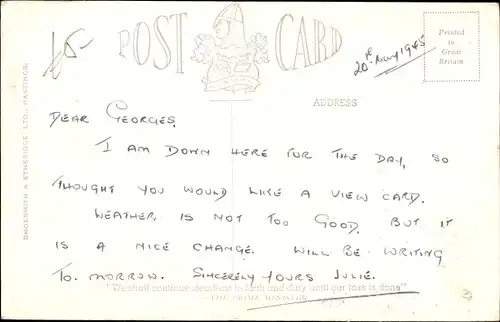 15-
POST CARD
20th May 1945
Printed
in
Great
Britain
SHOESMITH & ETHERIDGE LTD., HASTINGS.
ADDRESS
DEAR GEORGES.
I AM DOWN HERE FOR THE DAY, SO
THOUGHT YOU WOULD LIKE A VIEW CARD.
WEATHER IS NOT TOO GOOD. BUT IT
IS A NICE CHANGE. WILL BE WRITING
TO. MORROW. SINCERELY YOURS JULIE.
"We shall continue steadfast in faith and duty until our task is done"
—THE PRIME MINISTER